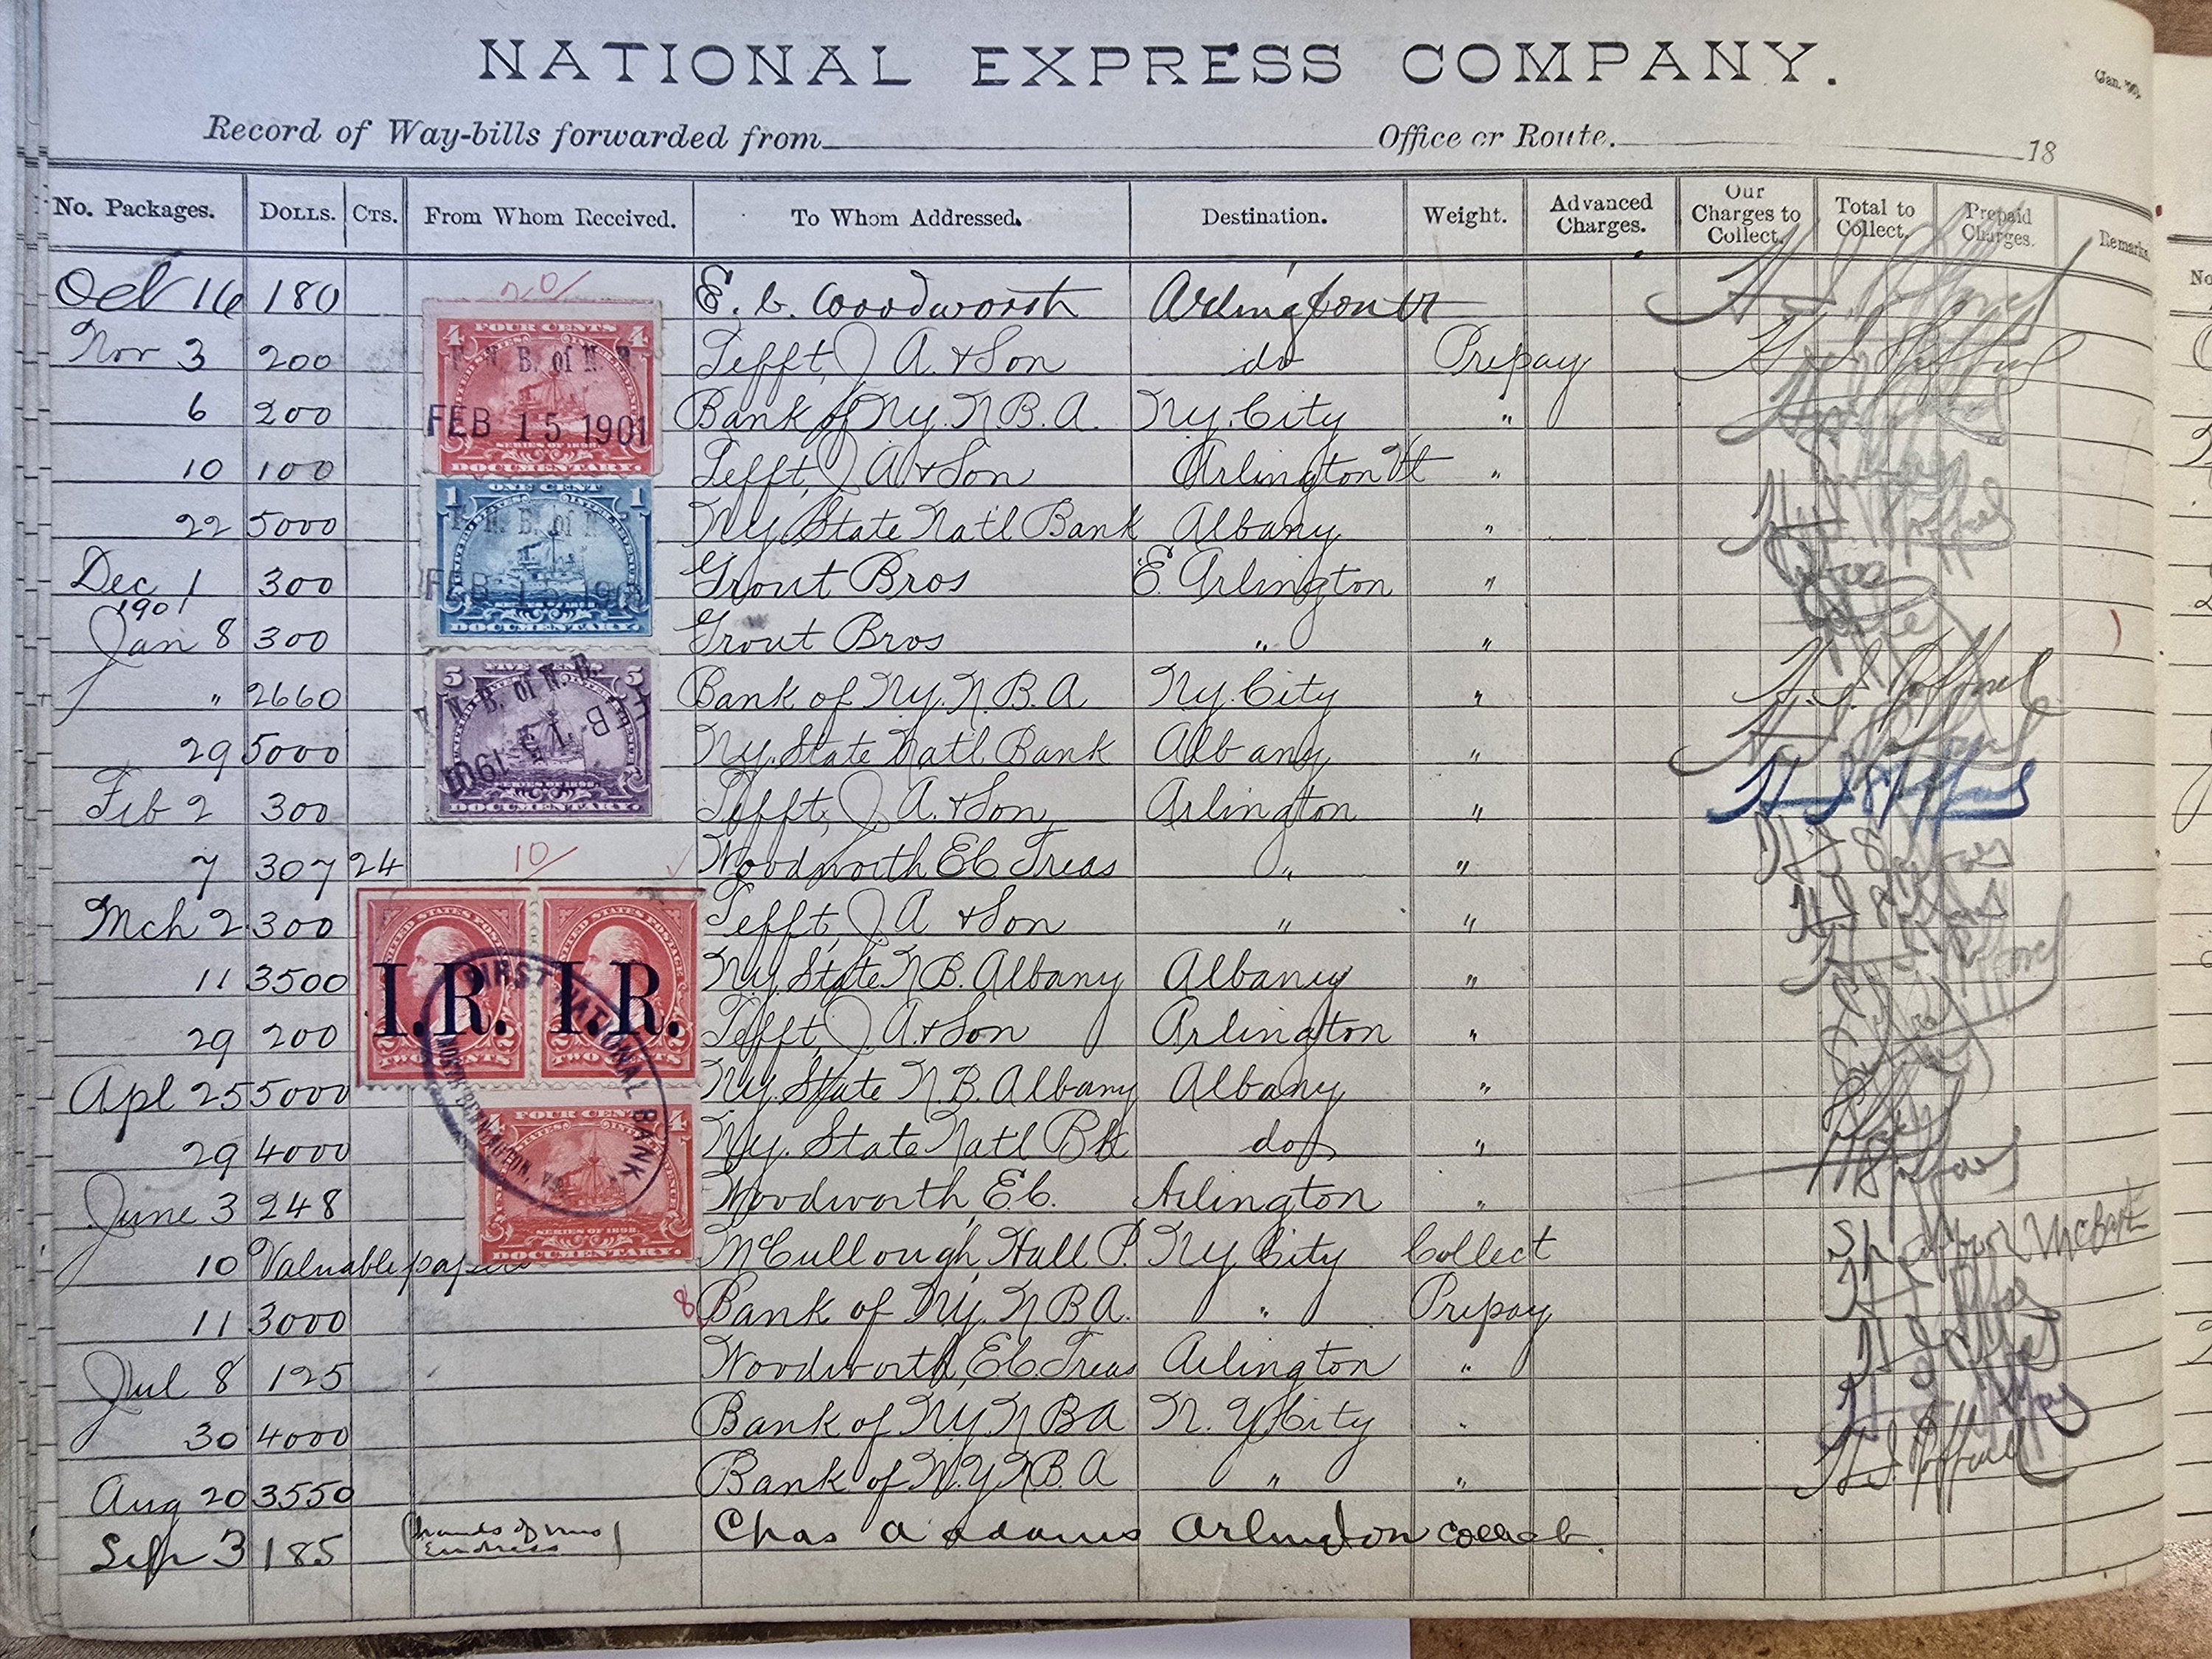 NATIONAL EXPRESS COMPANY.
Record of Way-bills forwarded from Office or Route. 18
No. Packages. DOLLS. CTS. From Whom Received. To Whom Addressed. Destination. Weight. Advanced Charges. Our Charges to Collect. Total to Collect. Prepaid Charges. Remarks.
Oct 16 180 E. C. Woodworth Arlington Vt
Nov 3 200 Tefft, J A. & Son do Prepay
6 200 Bank of Ny. N.B.A. Ny. City "
10 100 Tefft, J A & Son Arlington Vt "
22 5000 Ny State Natl Bank Albany "
Dec 1 300 Grout Bros E. Arlington "
1901
Jan 8 300 Grout Bros " "
" 2660 Bank of Ny. N.B.A Ny. City "
29 5000 Ny. State Natl Bank Albany "
Feb 2 300 Tefft, J A. & Son Arlington "
10/
7 307 24 Woodworth E C Treas " "
Mch 2 300 Tefft, J A & Son " "
11 3500 Ny. State N.B. Albany Albany "
29 200 Tefft, J A & Son Arlington "
Apl 25 5000 Ny. State N.B. Albany Albany "
29 4000 Ny. State Natl Bk do "
June 3 248 Woodworth, E C. Arlington "
10 Valuable papers McCullough, Hall P. Ny City Collect
11 3000 8 Bank of Ny. N B A. " Prepay
Jul 8 125 Woodworth, E C. Treas Arlington "
30 4000 Bank of Ny N. B A N. Y City "
Aug 20 3550 Bank of N.Y N.B. A " "
Sep 3 185 Chas A Adams Arlington Collect.
4 FOUR CENTS 4
N. B. of N. B.
FEB 15 1901
SERIES OF 1898.
DOCUMENTARY.
1 ONE CENT 1
N. B. of N.
FEB 15 190
SERIES OF 1898
DOCUMENTARY.
5 FIVE CENTS 5
N. B. of N. B.
FEB 15 1901
SERIES OF 1898.
DOCUMENTARY.
UNITED STATES POSTAGE UNITED STATES POSTAGE
I.R. I.R.
2 TWO CENTS 2 2 TWO CENTS 2
FIRST NATIONAL BANK
NORTH BENNINGTON, VT.
4 FOUR CENTS 4
SERIES OF 1898.
DOCUMENTARY.